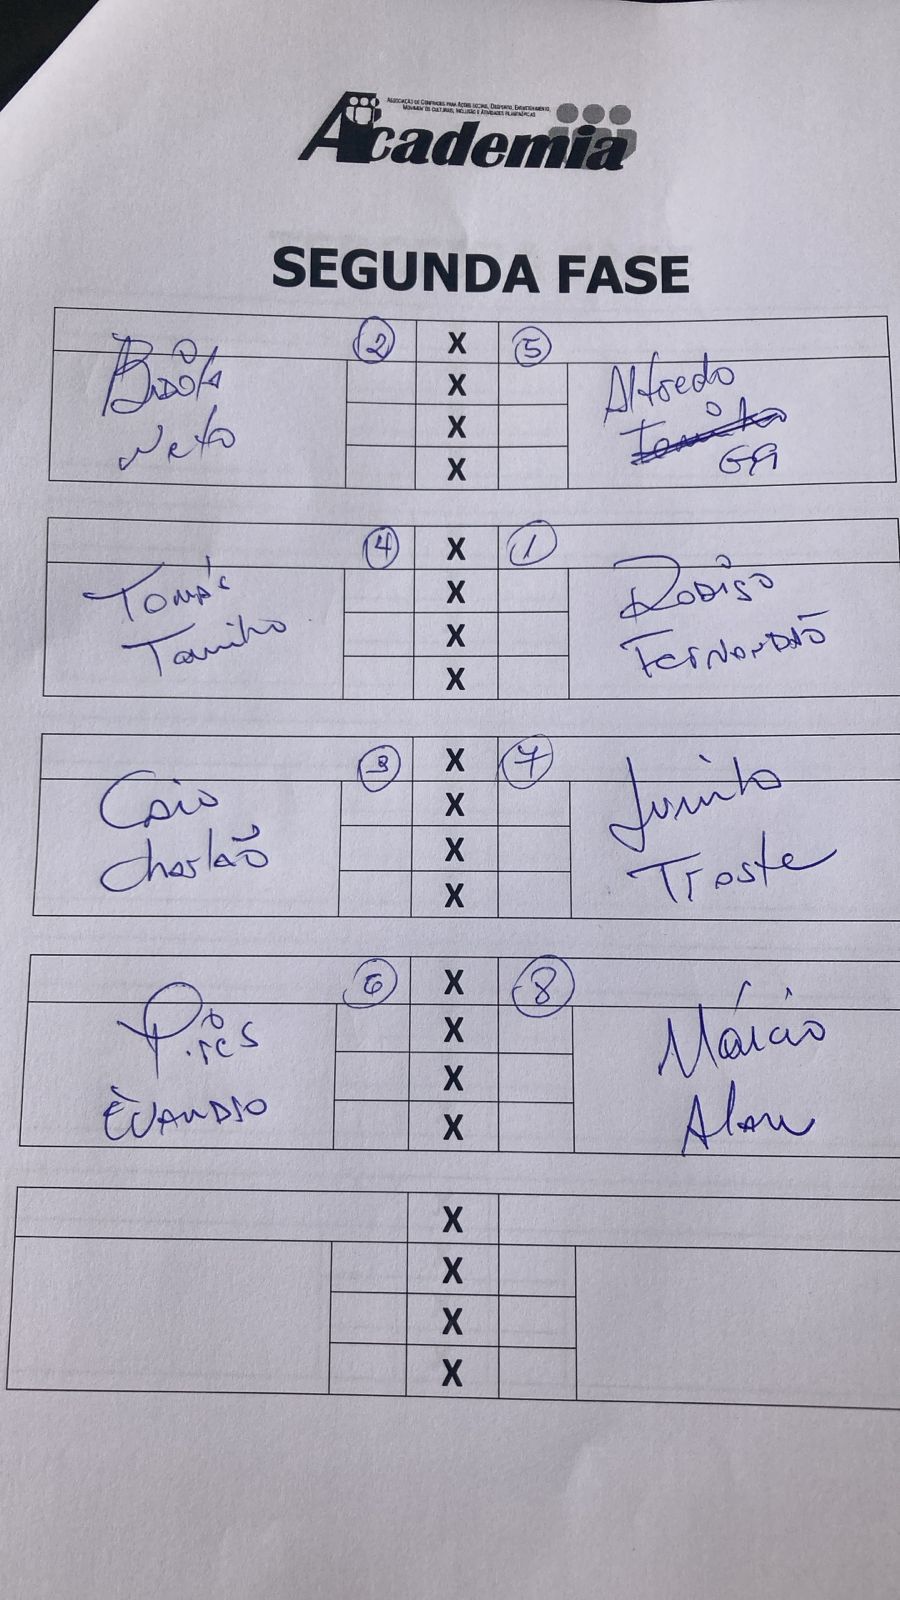 ASSOCIAÇÃO DE CONFRADES PARA AÇÕES SOCIAIS, DESPORTO, ENTRETENIMENTO,
MOVIMENTOS CULTURAIS, INCLUSÃO E ATIVIDADES FILANTRÓPICAS
Academia
SEGUNDA FASE
2 X 5
X
X
X
Neto
Alfredo
GG
4 X 1
X
X
X
Tomás
Toninho
Rodigo
FERNANDÃO
3 X 7
X
X
X
Caio
Charlão
Juninho
Traste
6 X 8
X
X
X
Pires
EVANDRO
Márcio
Alan
X
X
X
X